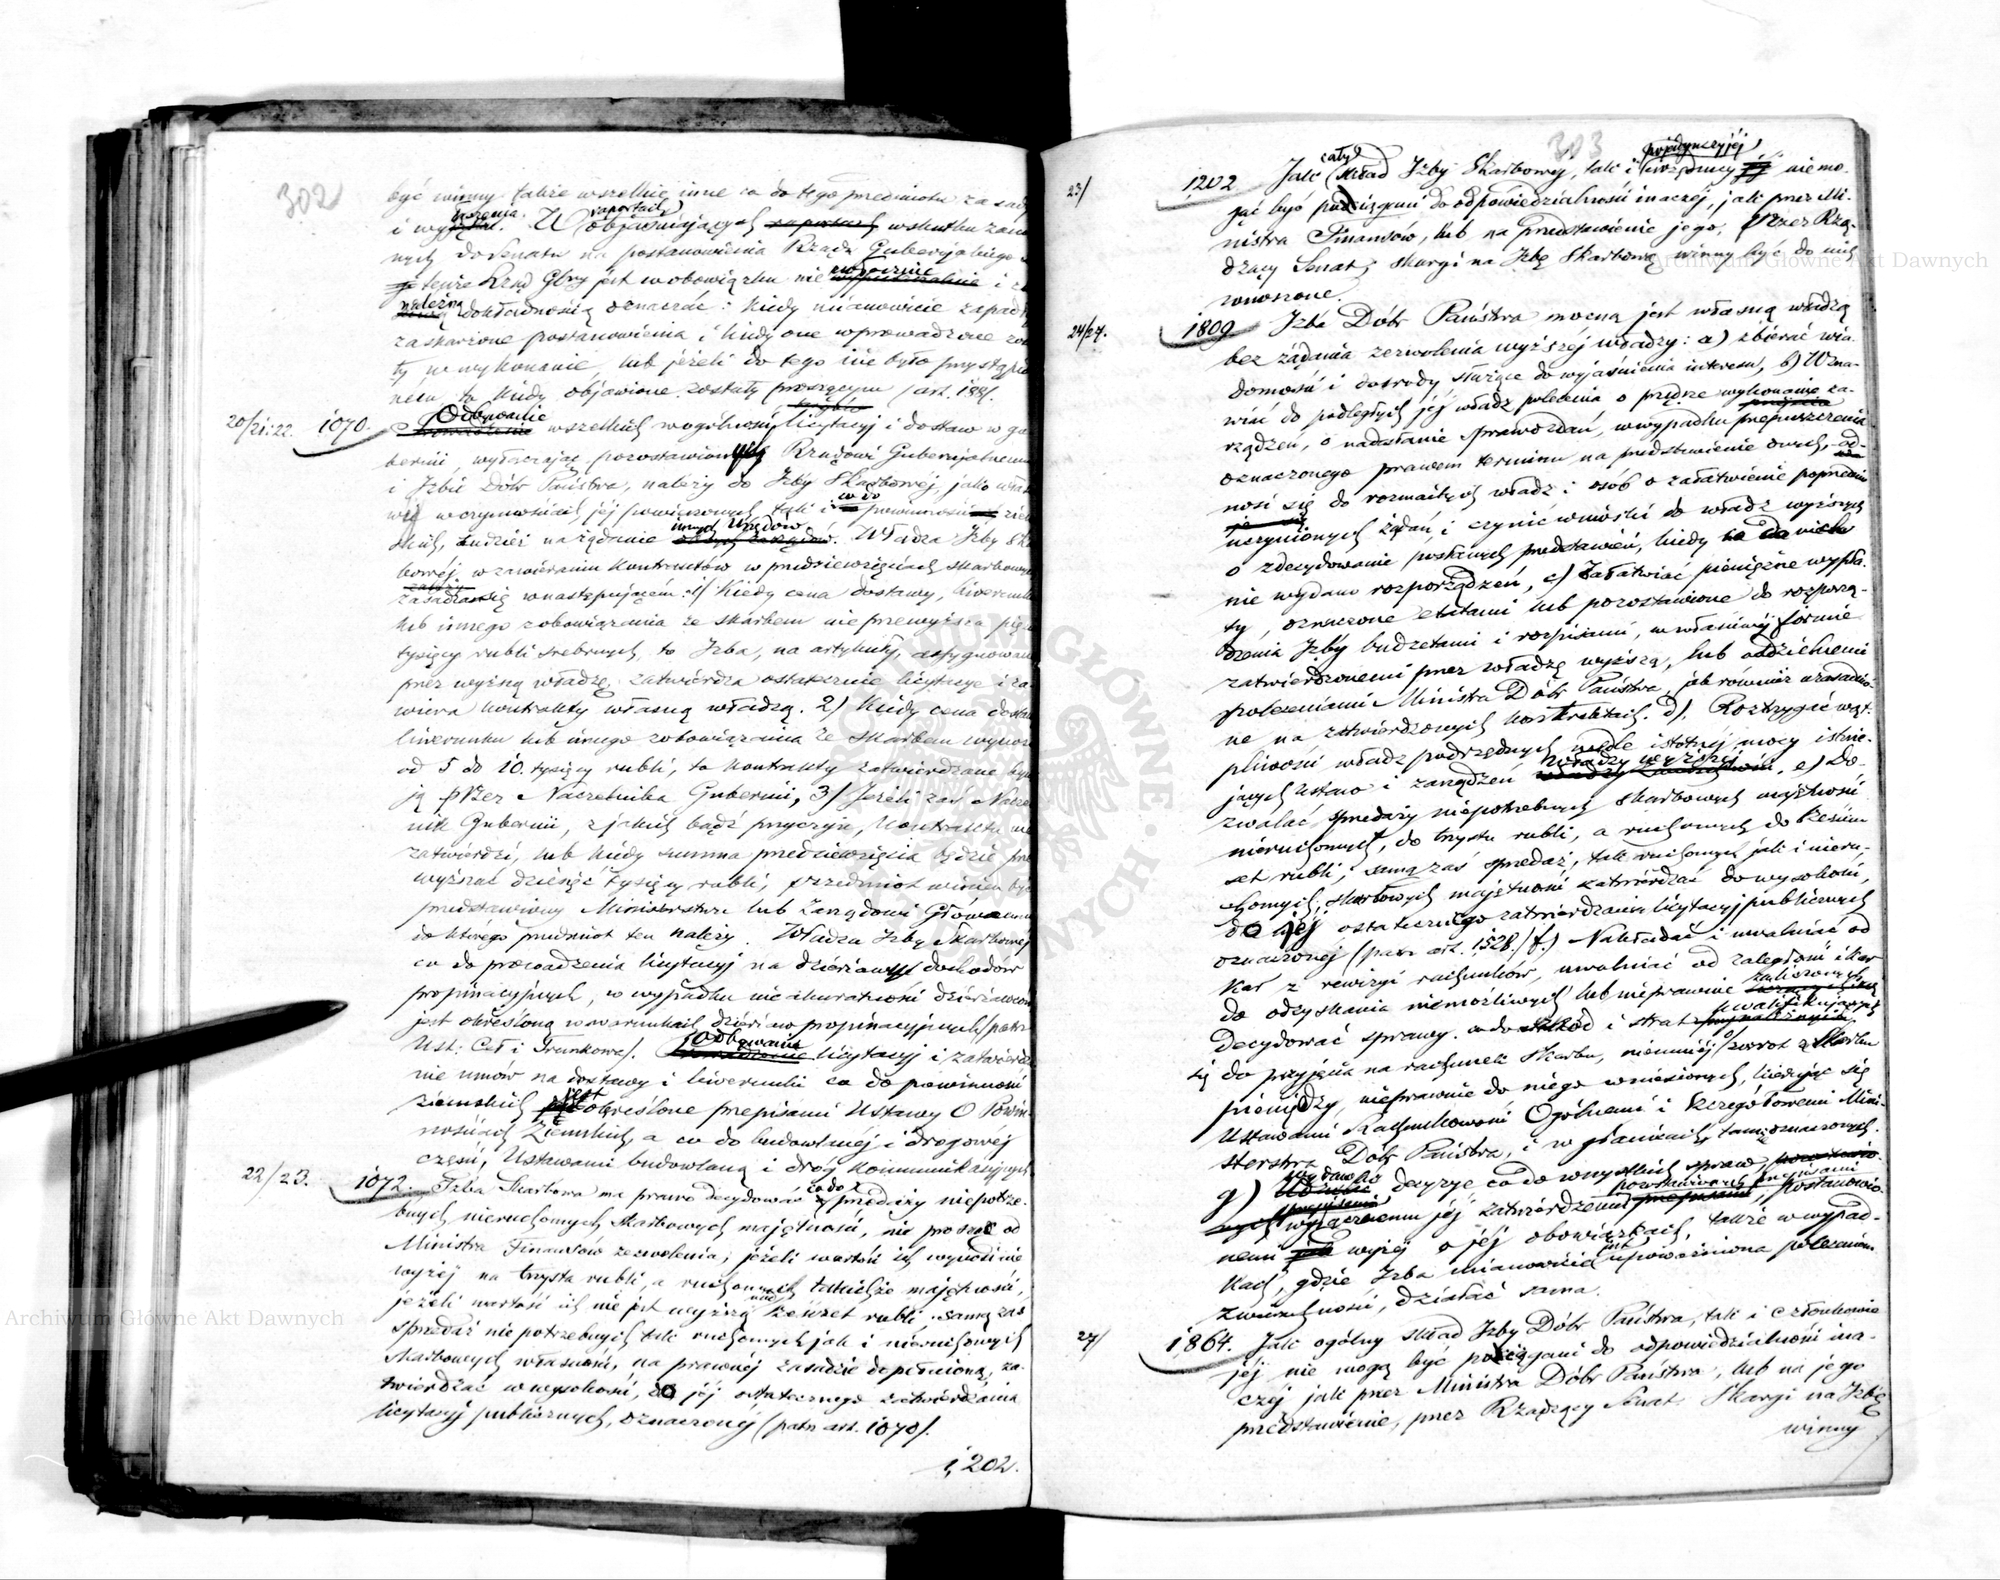 302
być winny także wszelkie inne co do tego przedmiotu zasady
i wyjaśnienia. W raportach objaśniających raportach wskutku zano
nych do Senatu na postanowienia Rządu Gubernjalnego
tenże Rząd Glny jest w obowiązku nie i z
należną dokładnością oznaczać: kiedy mianowicie zapadły
zaskarżone postanowienia i kiedy one wprowadzone zos
ły w wykonanie, lub jeżeli do tego nie było przystąpio
nem, to kiedy objawione zostały proszącym /art. 188/.
20/21.22. 1070. Odbywanie wszelkich wogólności licytacyj i dostaw w gu
bernii, wyłączając pozostawione Rządowi Gubernjalnemu
i Izbie Dóbr Państwa, należy do Izby Skarbowéj, jako
w czynnościach jéj powierzonych, tak i co do powinności ziem
skich, tudzież na żądanie innych Urzędów. Władza Izby Ska
bowéj w zawieraniu kontraktów w przedsięwzięciach skarbowych
zasadza się w następującém: 1/ Kiedy cena dostawy, liwerunku
lub innego zobowiązania ze skarbem nie przewyższa pięciu
tysięcy rubli srebrnych, to Izba, na artykuły, assygnowane
przez wyższą władzę, zatwierdza ostatecznie licytacye i za
wiera kontrakty własną władzą. 2) Kiedy cena dostawy
liwerunku lub innego zobowiązania ze skarbem wynosi
od 5 do 10. tysięcy rubli, to kontrakty zatwierdzane by
ją przez Naczelnika Gubernii, 3/ Jeżeli zaś Naczel
nik Gubernii, z jakich bądź przyczyn, kontraktu nie
zatwierdzi, lub kiedy summa przedsięwzięcia będzie prze
wyższać dziesięć tysięcy rubli, przedmiot winien być
przedstawiony Ministerstwu lub Zarządowi Głównemu
do którego przedmiot ten należy. Władza Izby Skarbowéj
co do prowadzenia licytacyj na dzierżawy dochodów
propinacyjnych, w wypadku nieakuratności dzierżawców
jest określoną w warunkach dzierżaw propinacyjnych /patrz
Ust: Ceł i Trunkowa/. Odbywanie licytacyj i zatwierdze
nie umów na dostawy i liwerunki co do powinności
ziemskich jest określone przepisami Ustawy O Powin
nościach Ziemskich, a co do budowlanéj i drogowéj
części, Ustawami budowlaną i dróg kommunikacyjnych
22/23. 1072. Izba Skarbowa ma prawo decydować co do sprzedaży niepotrze
bnych nieruchomych skarbowych majętności, nie prosząc od
Ministra Finansów zezwolenia, jeżeli wartość ich wynosi nie
wyżéj na trzysta rubli, a ruchomych takichże majętności,
jeżeli wartość ich nie jest wyższą nad sześćset rubli. Samą zaś
sprzedaż niepotrzebnych tak ruchomych jak i nieruchomych
skarbowych własności, na prawnéj zasadzie dopełnioną, za
twierdzać w wysokości, do jéj ostatecznego zatwierdzania
licytacyj publicznych, oznaczonéj (patrz art. 1070/.
1,202.
303
23/ 1,202 Jak cały skład Izby Skarbowéj, tak i pojedynczy jéj urzędnicy nie mo-
gąć być pociągani do odpowiedzialności inaczéj, jak przez Mi-
nistra Finansów, lub na przedstawienie jego, przez Rzą-
dzący Senat; skargi na Izbę Skarbową winny być do nich
wnoszone.
24/27. 1809 Izba Dóbr Państwa mocną jest własną władzą
bez żądania zezwolenia wyższéj władzy: a) zbierać wia
domości i dowody służące do wyjaśnienia interesu, b) Wzna-
wiać do podległych jéj władz polecenia o prędsze wykonanie za-
rządzeń, o nadesłanie sprawozdań, w wypadku przepuszczenia
oznaczonego prawem terminu na przedstawienie owych, od-
nosić się do rozmaitych władz i osób o załatwienie poprzednio
uczynionych żądań, i czynić wnioski do władz wyższych
o zdecydowanie posłanych przedstawień, kiedy na nich
nie wydano rozporządzeń, c) Załatwiać pieniężne wypła-
ty, oznaczone etatami lub pozostawione do rozporzą-
dzenia Izby budżetami i rozpisami, w właściwéj formie
zatwierdzonemi przez władzę wyższą, lub oddzielnemi
poleceniami Ministra Dóbr Państwa, jak również uzasadnio-
ne na zatwierdzonych kontraktach. d). Roztrzygać wąt-
pliwości władz podrzędnych wedle istotnéj mocy istnie-
jących ustaw i zarządzeń władzy wyższéj, e) Do-
zwalać sprzedaży niepotrzebnych skarbowych majętności
nieruchomych, do trzystu rubli, a ruchomych do sześciu
set rubli; samą zaś sprzedaż, tak ruchomych jak i nieru-
chomych, skarbowych majętności zatwierdzać do wysokości,
do jéj ostatecznego zatwierdzania licytacyj publicznych
oznaczonéj (patrz art. 1528./ f.) Nakładać i uwalniać od
kar z rewizyi rachunków, uwalniać od zaległości i kar
do odzyskania niemożliwych lub nieprawnie zaliczonych
Decydować sprawy co do szkód i strat kwalifikujących
się do przyjęcia na rachunek skarbu, niemniéj zwrot z Skarbu
pieniędzy, nieprawnie do niego wniesionych, kierując się
Ustawami Rachunkowości Ogólnemi i Szczegółowemi Mini-
sterstwa Dóbr Państwa, i w granicach, tamże oznaczonych.
g) Wydawać decyzye co do wszystkich spraw,
wyłącznemu jéj zatwierdzeniu powstawionych przepisami, postanowio-
nemi wyżéj o jéj obowiązkach, także w wypad-
kach, gdzie Izba mianowicie jest upoważniona poleceniem
zwierzchności, działać sama.
27/ 1,864. Jak ogólny skład Izby Dóbr Państwa, tak i członkowie
jéj nie mogą być pociągani do odpowiedzialności ina-
czéj jak przez Ministra Dóbr Państwa, lub na jego
przedstawienie, przez Rządzący Senat. Skargi na Izbę
winny
Archiwum Główne Akt Dawnych
Archiwum Główne Akt Dawnych